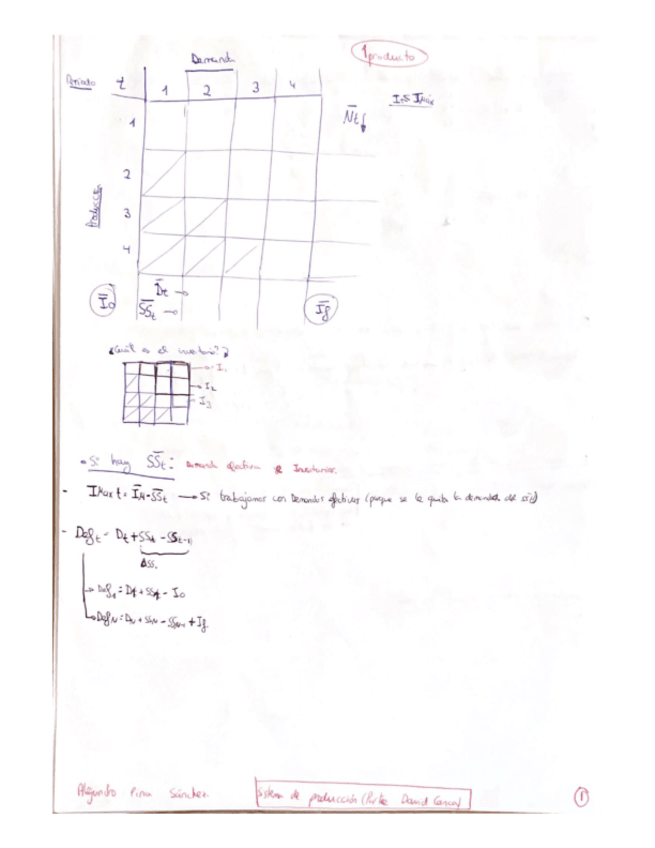 1 producto
Demanda
Periodo t 1 2 3 4
I ≤ IMáx
N̄t ↓
1
2
3
4
Producción
D̄t →
Ī0 S̄S̄t → Īf
¿Cuál es el inventario?
→ I1
→ I2
→ I3
• Si hay S̄S̄t: Demanda efectiva e Inventarios.
- IMáx t = ĪM - S̄S̄t → Si trabajamos con Demandas efectivas (porque se le quita la demanda de
- Deft = Dt + SSt - SSt-1
ΔSS.
→ Def1 = D1 + SS1 - I0
→ DefN = DN + SSN - SSN-1 + If.
Alejandro Pina Sánchez.
Sistema de producción (Parte David
1